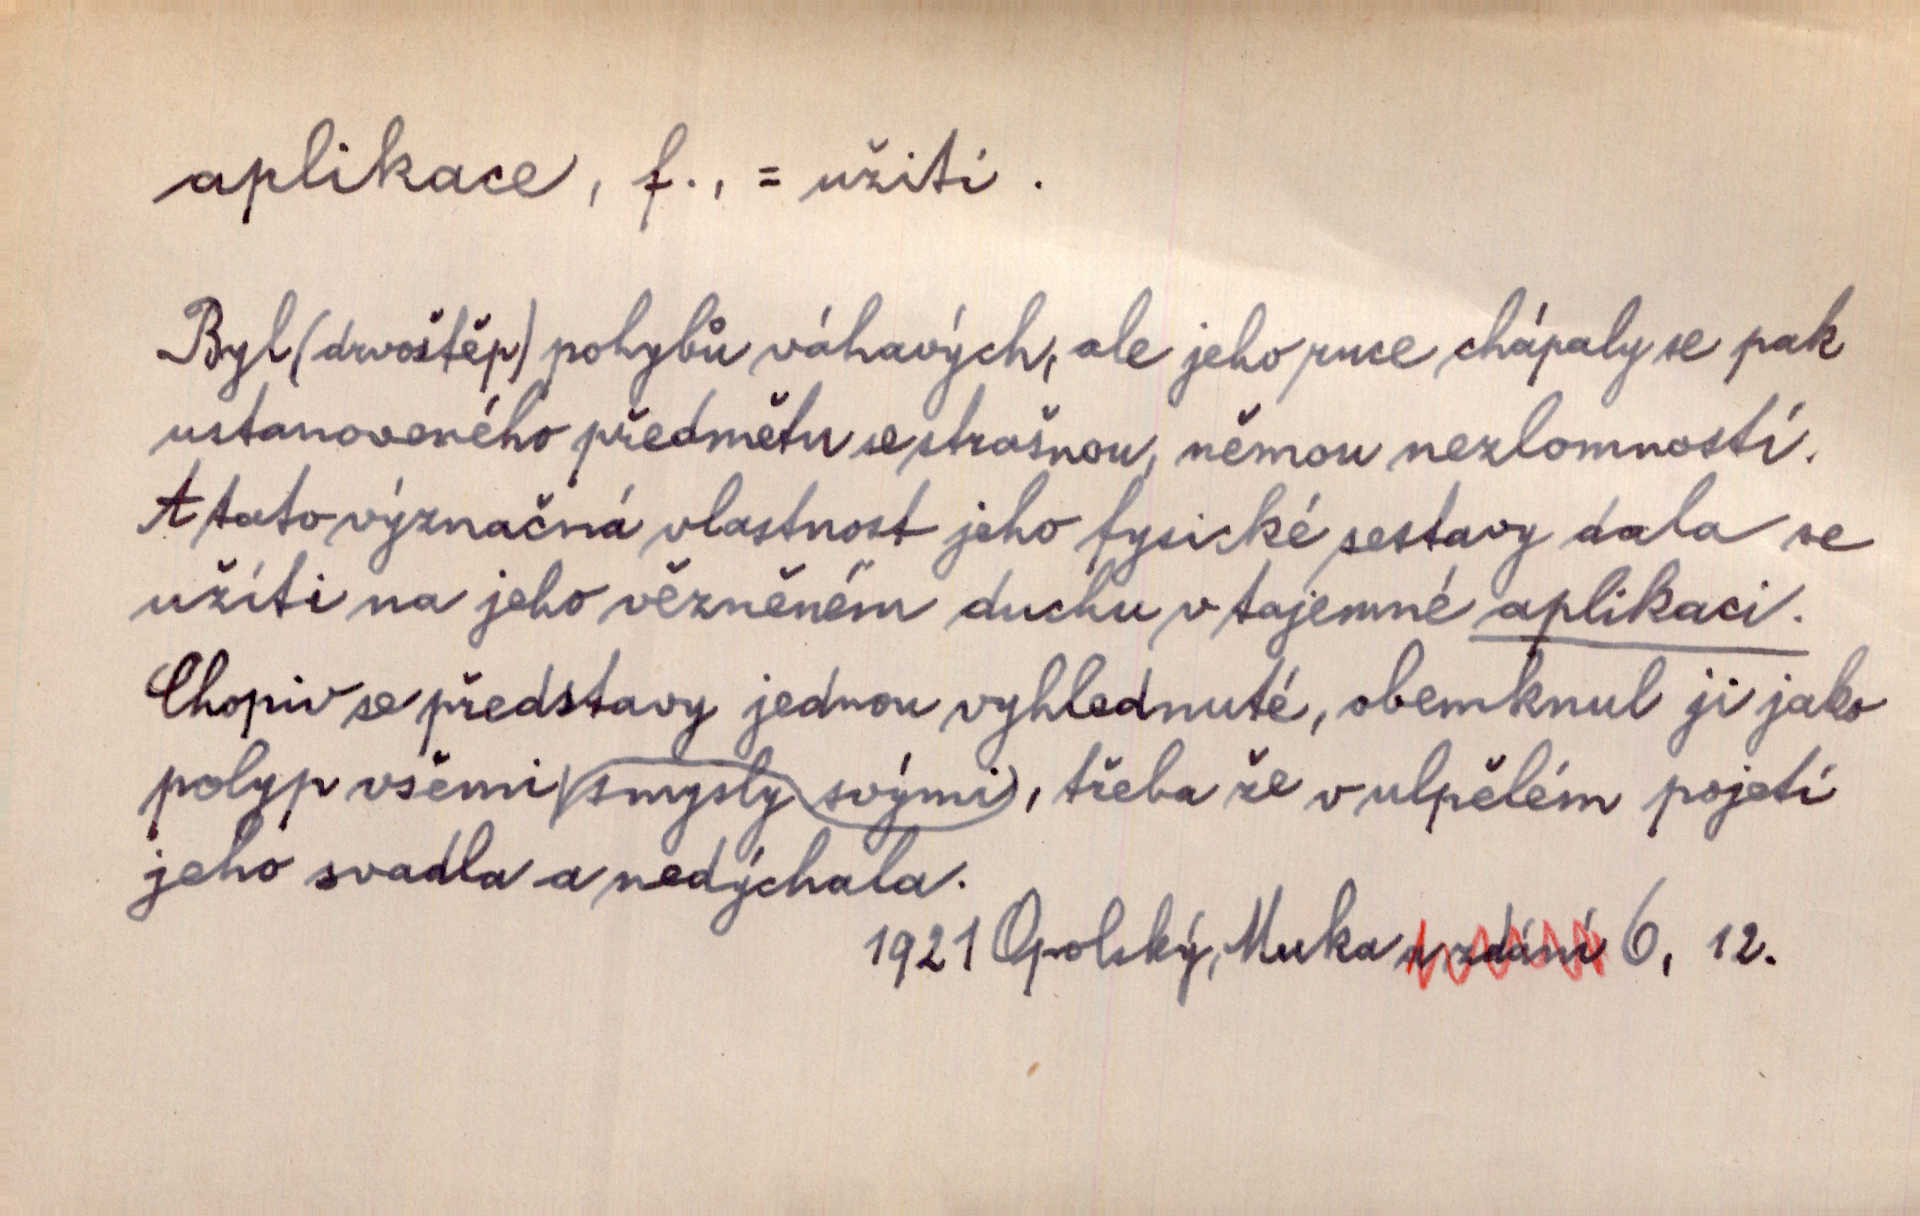 aplikace, f., = užití.
Byl (drvoštěp) pohybů váhavých, ale jeho ruce chápaly se pak
ustanoveného předmětu se strašnou, němou nezlomností.
A tato význačná vlastnost jeho fysické sestavy dala se
užíti na jeho vězněném duchu v tajemné aplikaci.
Chopiv se představy jednou vyhlednuté, obemknul ji jako
polyp všemi smysly svými, třeba že v ulpělém pojetí
jeho svadla a nedýchala.
1921 Opolský, Muka a zdání 6, 12.